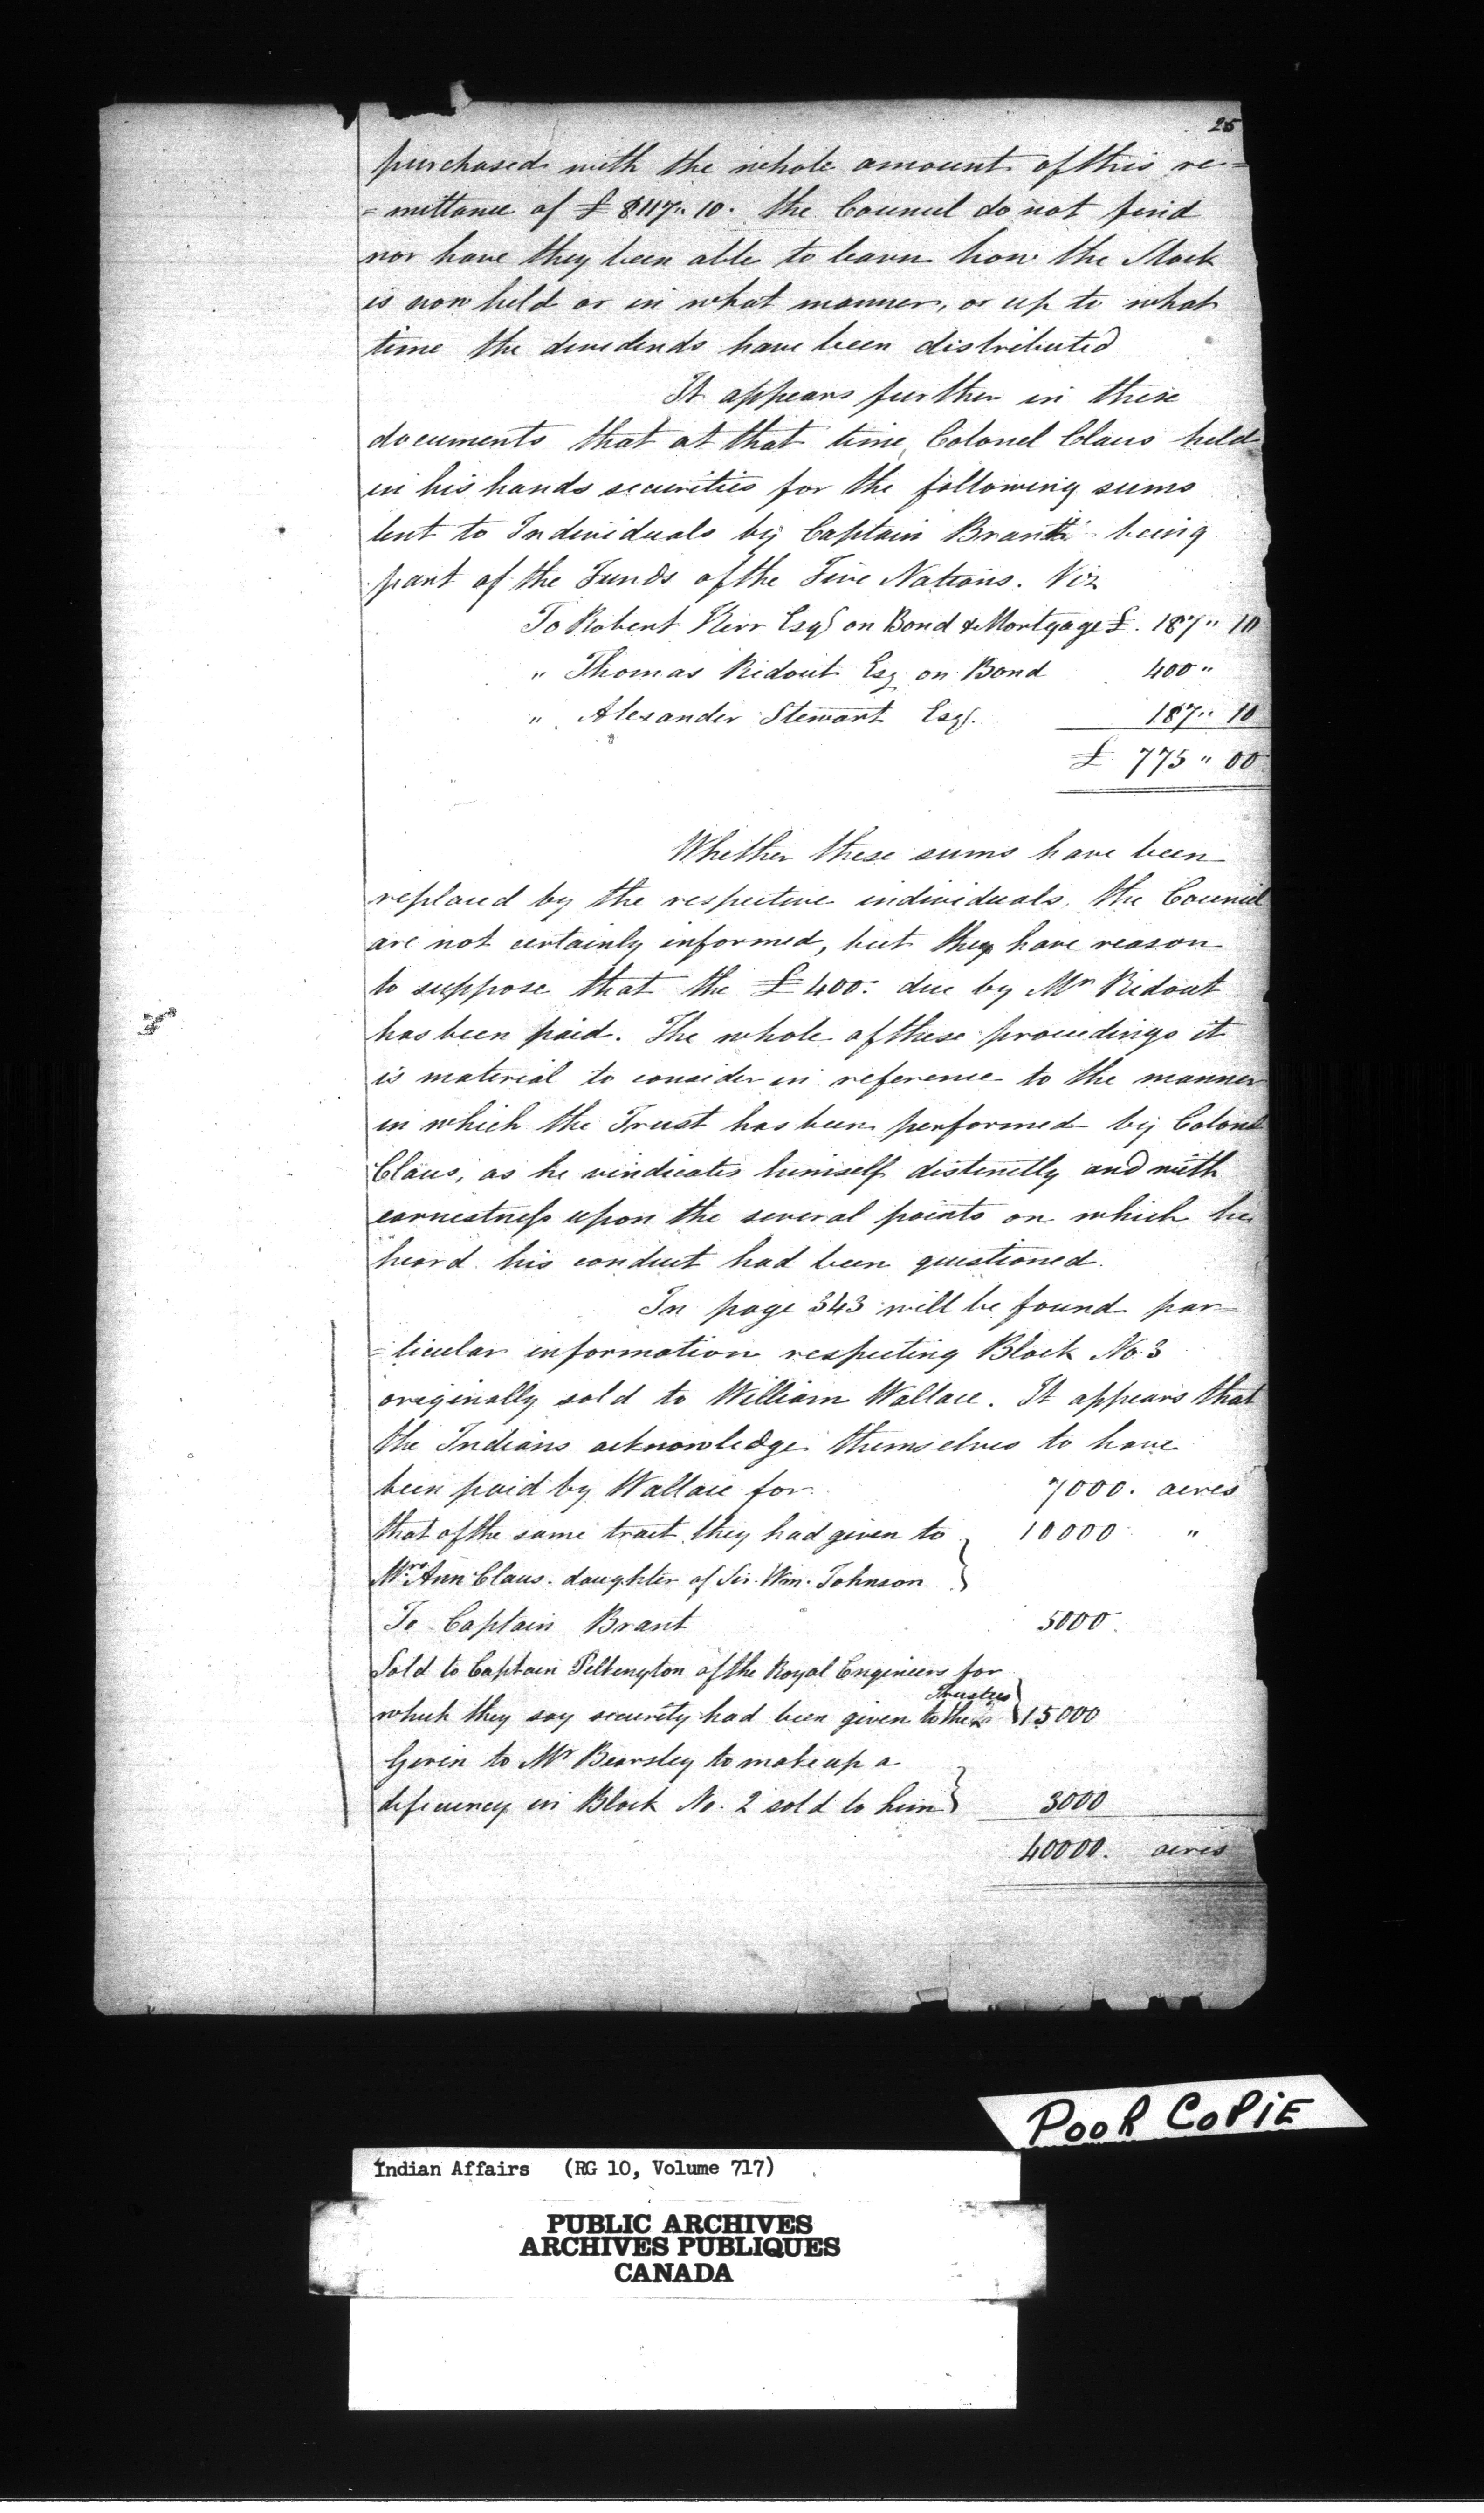 25
purchased with the whole amount of this re=
=mittance of £ 8117,, 10. the Council do not find
nor have they been able to learn how the Stock
is now held or in what manner, or up to what
time the dividends have been distributed
It appears further in these
documents that at that time, Colonel Claus held
in his hands securities for the following sums
lent to Individuals by Captain Brant being
part of the Funds of the Five Nations. Viz
To Robert Kerr Esqr on Bond & Mortgage £. 187 " 10
" Thomas Ridout Esq on Bond 400 "
" Alexander Stewart Esqr. 187 " 10
£ 775 " 00
Whether these sums have been
replaced by the respective individuals. the Council
are not certainly informed, but they have reason
to suppose that the £ 400. due by Mr Ridout
has been paid. The whole of these proceedings it
is material to consider in reference to the manner
in which the Trust has been performed by Colonel
Claus, as he vindicates himself distinctly and with
earnestness upon the several points on which he
heard his conduct had been questioned.
In page 343 will be found par=
=ticular information respecting Block No 3
originally sold to William Wallace. It appears that
the Indians acknowledge themselves to have
been paid by Wallace for 7000. acres
that of the same tract they had given to 10000 "
Mrs. Ann Claus. daughter of Sir Wm. Johnson }
To Captain Brant 5000.
Sold to Captain Pilkington of the Royal Engineers for
Trustees
which they say security had been given to the } 15000
Given to Mr Bearsley to make up a
deficiency in Block No. 2 sold to him } 3000
40000. acres
POOR COPIE
Indian Affairs (RG 10, Volume 717)
PUBLIC ARCHIVES
ARCHIVES PUBLIQUES
CANADA